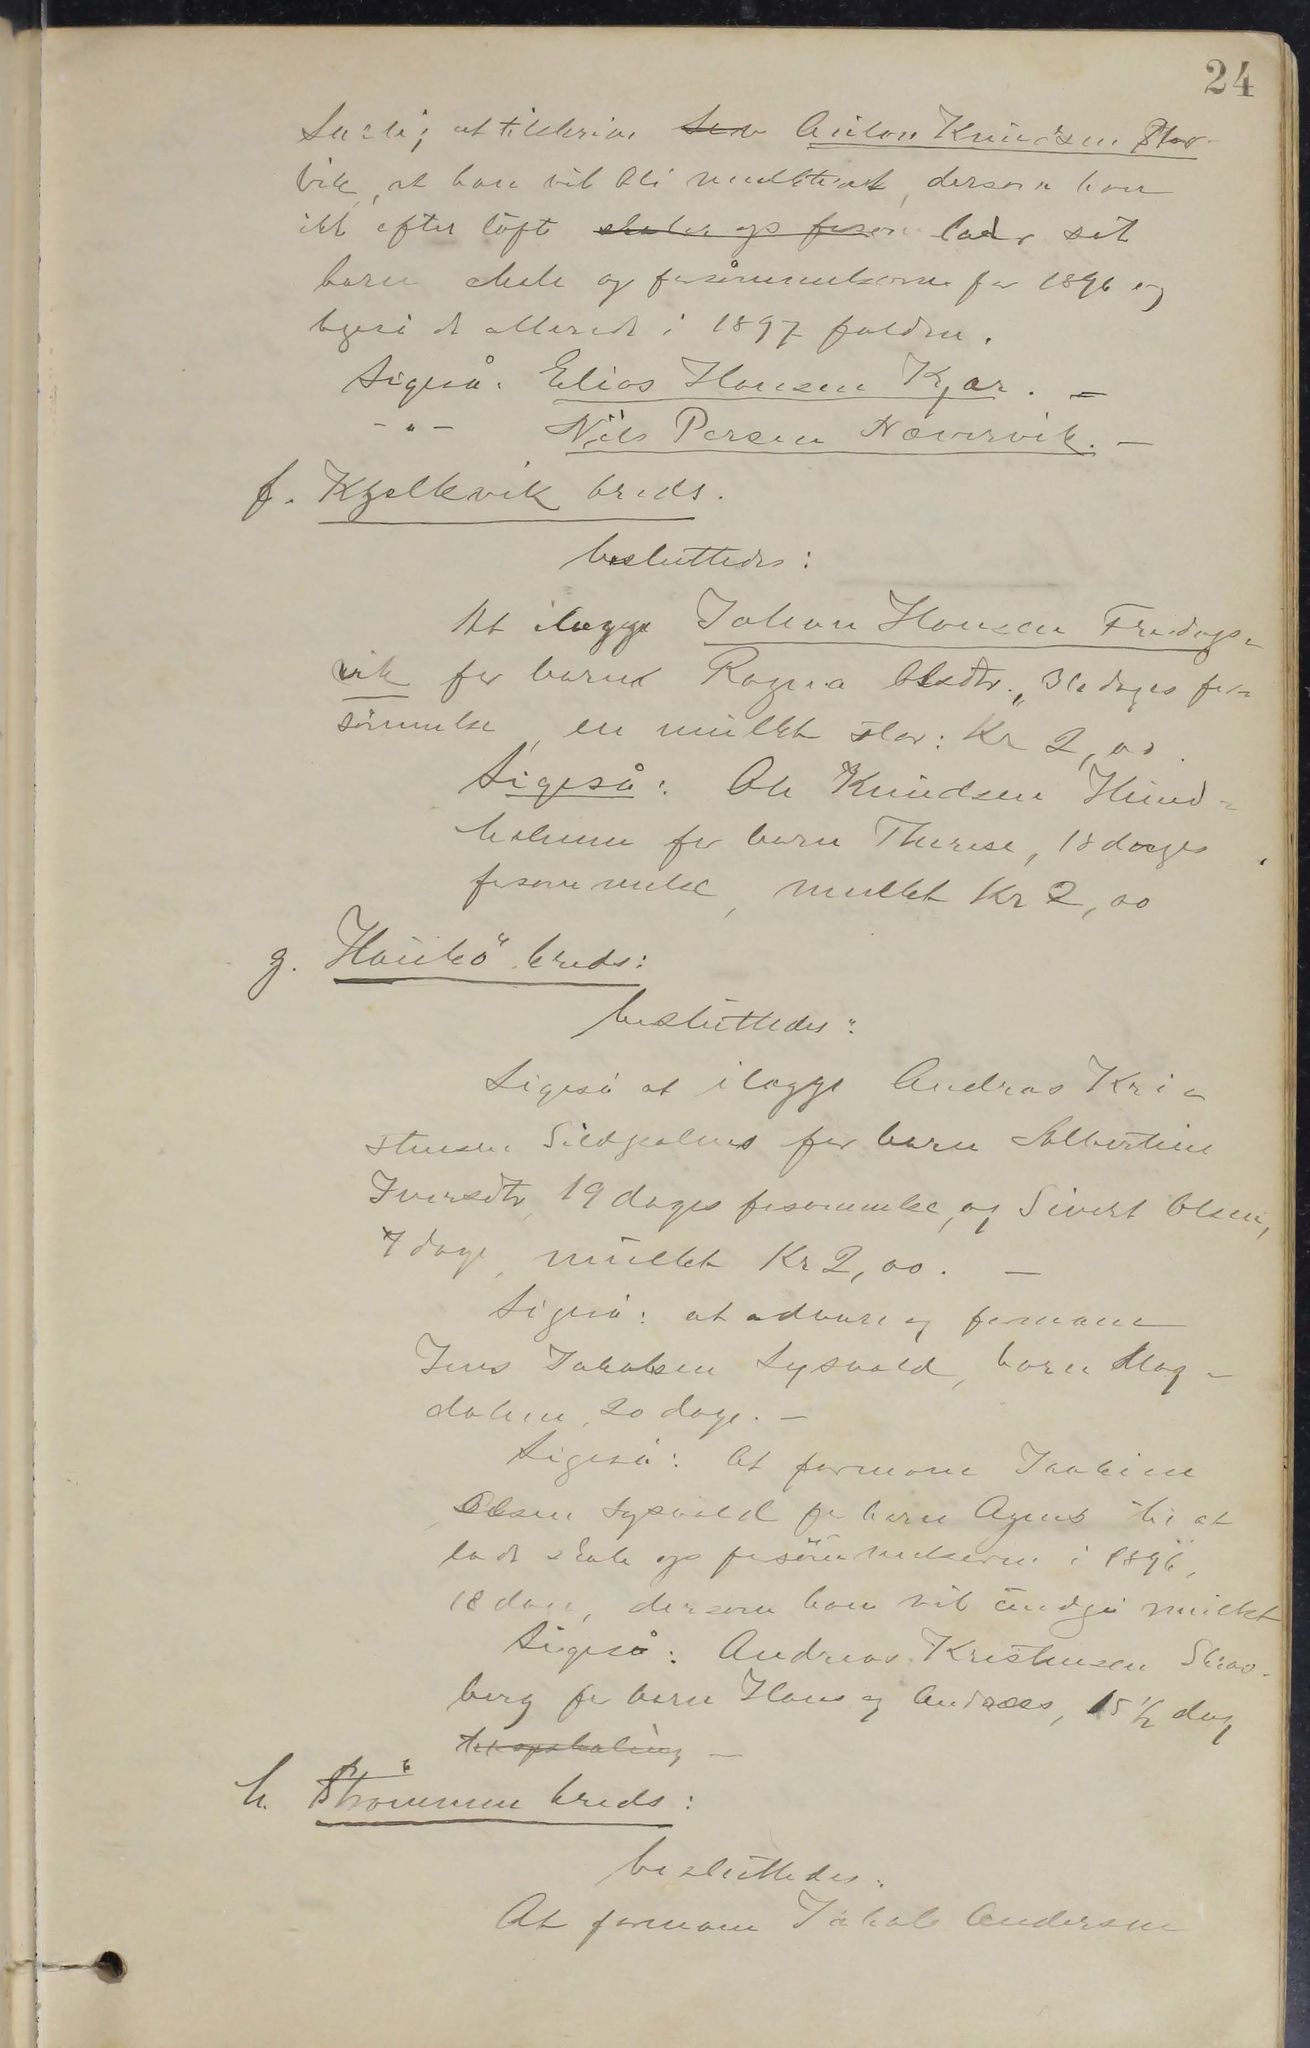 24
at tilskrive Anton Knudsen Stor-
vik, at han vil bli mulkteret, dersom han
ikke efter løft skoler op forsøm lader sit
barn skole op forsømmelserne for 1896 og
ligeså de allerede i 1897 faldne.
Ligeså: Elias Hansen Kjær. –
– " – Nils Persen Nævervik. –
f. Kjelkvik kreds.
besluttedes:
At ilægge Johan Hansen Fredags-
vik for barnet Ragna Olsdtr., dages for-
sømmelse, en mulkt stor: Kr 2,00.
Ligeså: Ole Knudsen Hund-
holmen for barn Therese, 18 dages
forsømmelse, mulkt Kr 2,00
g. Haukø kreds:
besluttedes:
Ligeså at ilægge Andreas Kri-
stensen for barn Albertine
Iversdtr, 19 dages forsømmelse, og Sivert Olsen,
7 dage, mulkt Kr 2,00. –
Ligeså: at advare og formane
Jens Jakobsen Lysvold, barn Mag-
dalene, 20 dage. –
Ligeså: At formane Joakim
Olsen Lysvold for barn Agnes til at
lade skole op forsømmelserne i 1896,
18 dage, dersom han vil undgå mulkt
Ligeså: Andreas Kristensen
berg for barn Hans og Andreas, 15 1/2 dag
til opskoling –
h. Strømmen kreds:
besluttedes:
At formane Jakob Andersen